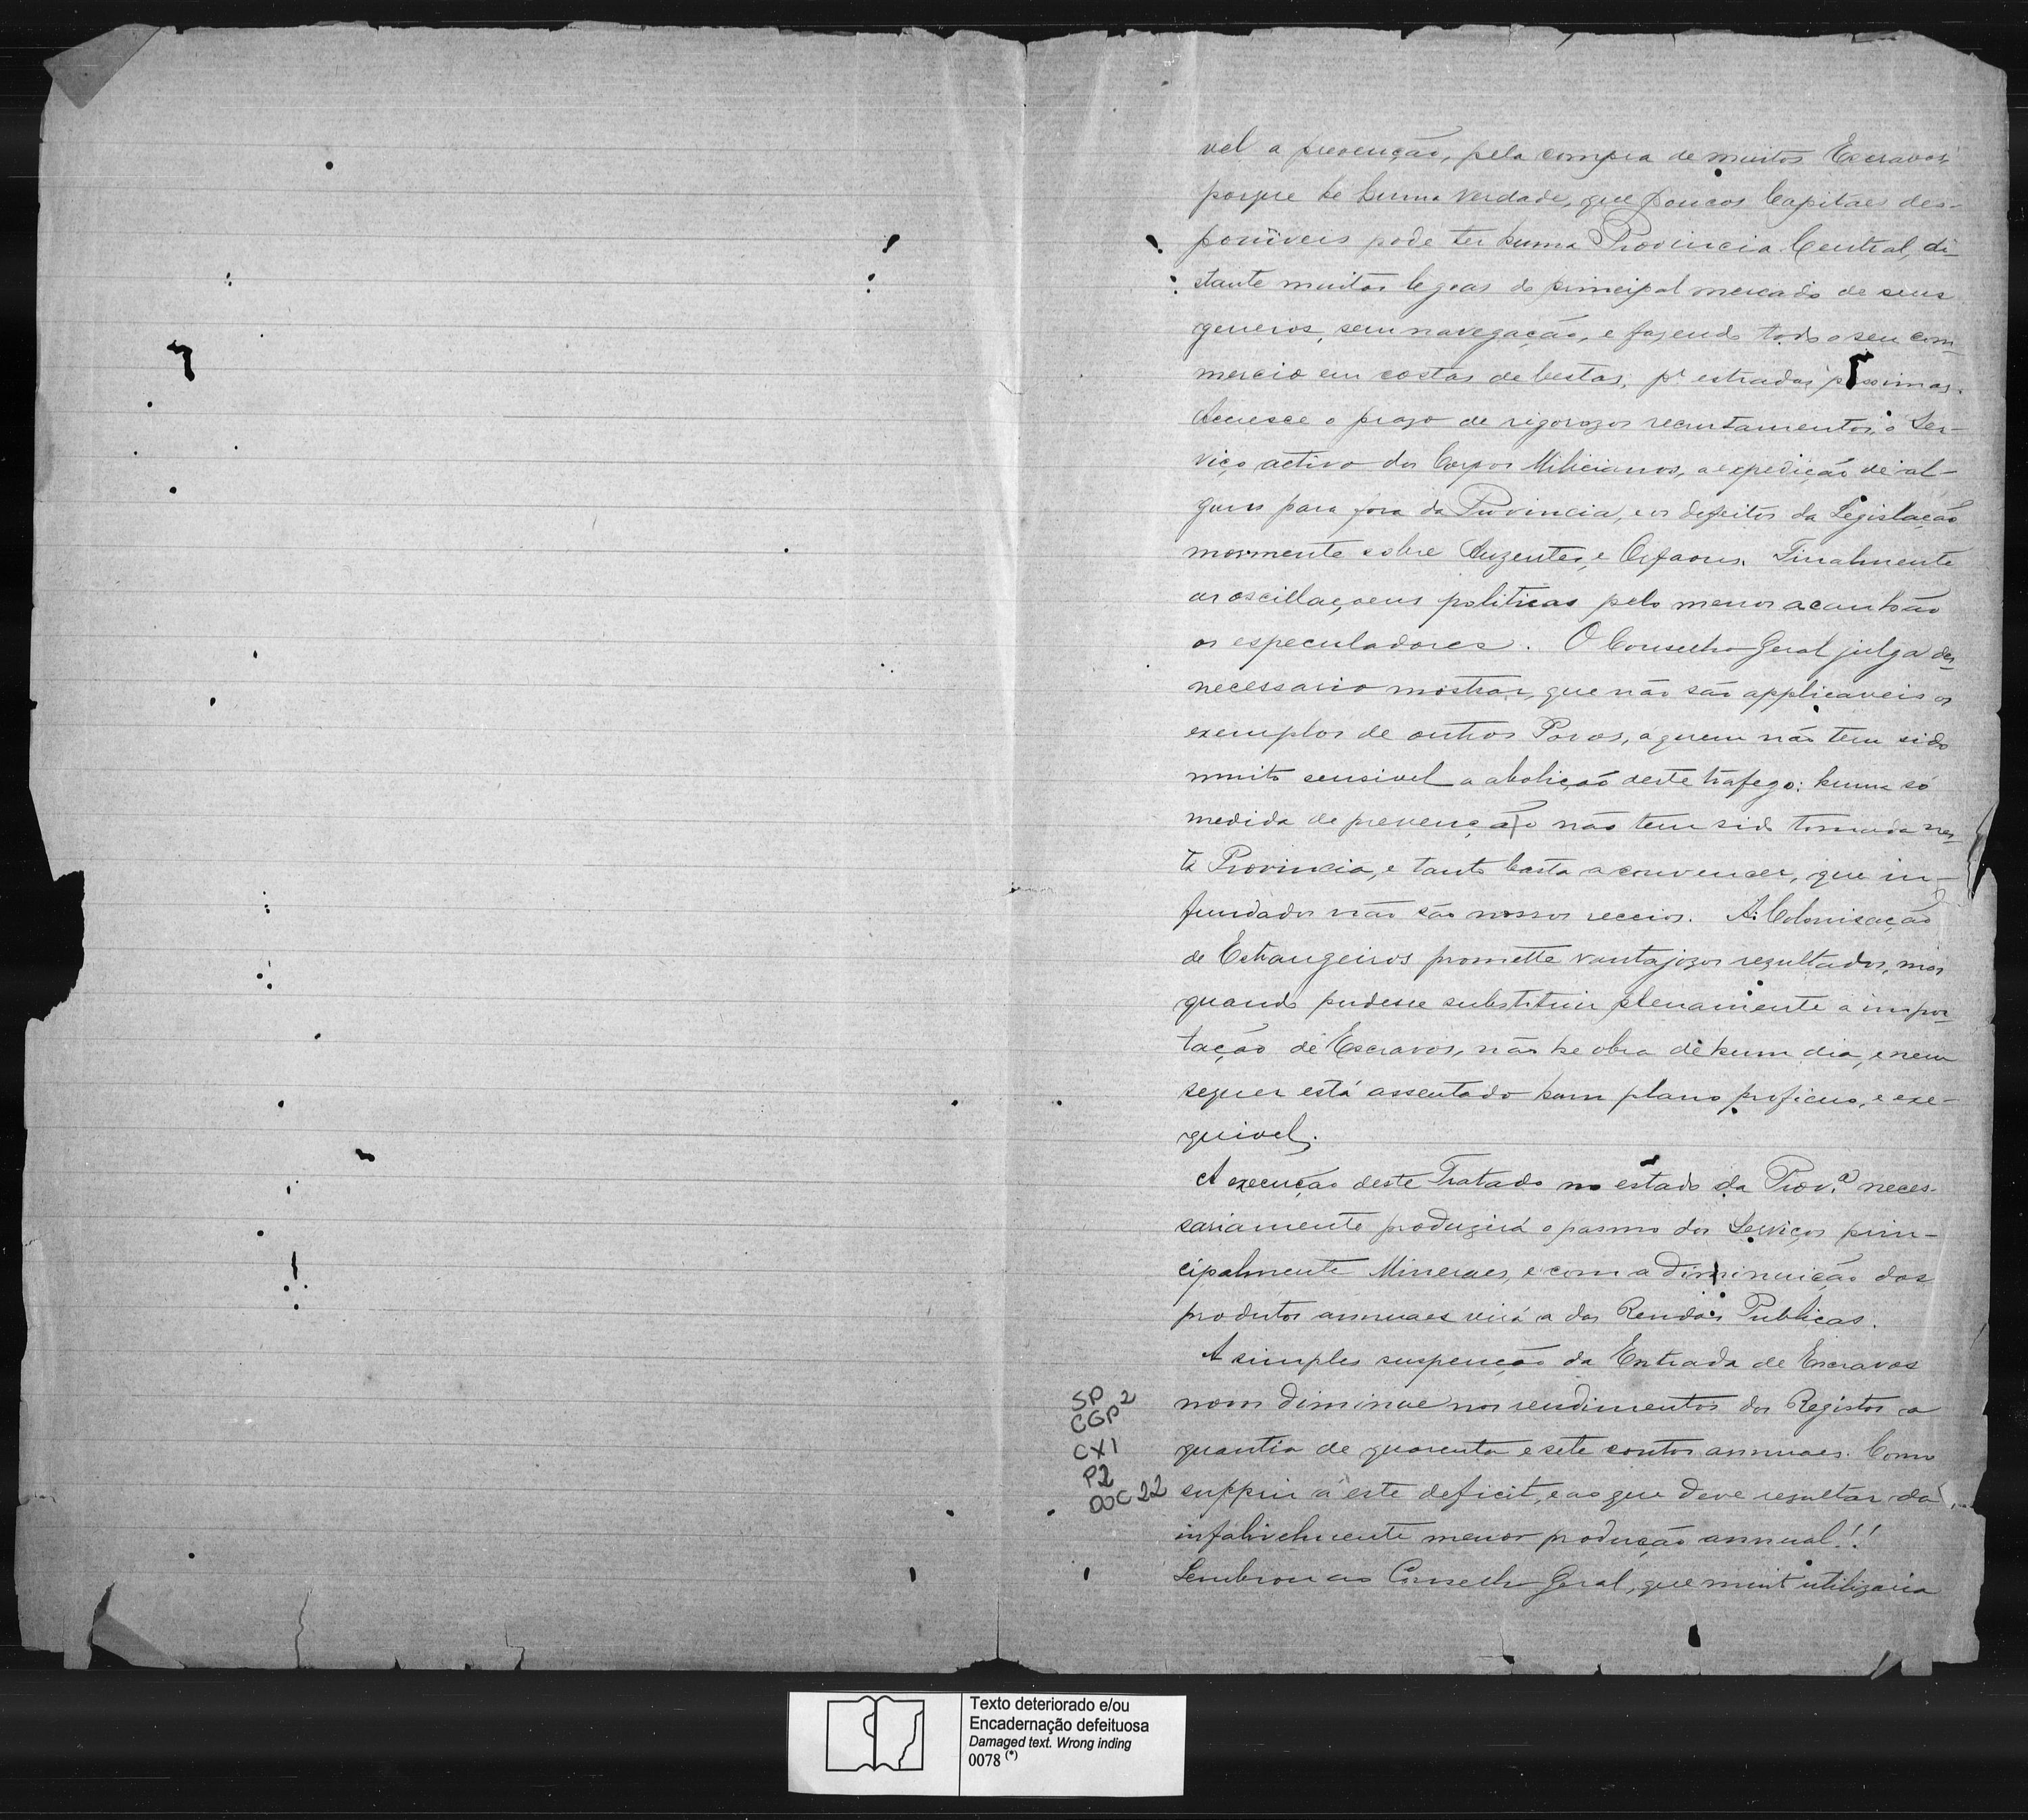 vel a prevenção, pela compra de muitos Escravos,
porque he huma verdade, que poucos Capitaes des-
poniveis pode ter huma Provincia Central, di-
stante muitas legoas do principal mercado de seus
generos, sem navegação, e fazendo todo o seu com-
mercio em costas de bestas, pr estradas pessimas.
Accresce o prazo de rigorozos recrutamentos, o Ser-
viço activo dos Corpos Milicianos, a expedição de al-
guns para fora da Provincia, e os defeitos da Legislação
mormente sobre Auzentes, e Orfaons. Finalmente
as oscillaçoens politicas pelo menos acanhão
os especuladores. O Conselho Geral julga des-
necessario mostrar, que não são applicaveis os
exemplos de outros Povos, a quem não tem sido
muito sensivel a abolição deste trafego: huma só
medida de prevenção não tem sido tomada nes-
ta Provincia, e tanto basta a convencer, que in-
fundados não são nossos receios. A Colonisação
de Estrangeiros promette vantajozos rezultados, mas
quando pudesse substituir plenamente a impor-
tação de Escravos, não he obra de hum dia, e nem
sequer está assentado hum plano proficuo, e exe-
quivel.
A execução deste Tratado no estado da Prov.ª neces-
sariamente produzirá o pasmo dos Serviços prin-
cipalmente Mineraes, e com a diminuição dos
produtos annuaes virá a das Rendas Publicas.
A simples suspenção da Entrada de Escravos
nom diminue nos rendimentos dos Registos a
quantia de quarenta e sete contos annuaes. Como
supprir a este deficit, e ao que deve rezultar da
infalivelmente menor produção annual!!
Lembrou ao Conselho Geral, que muit utilizaria
SP
CGP2
CX1
P2
DOC 22
Texto deteriorado e/ou
Encadernação defeituosa
Damaged text. Wrong inding
0078 (*)